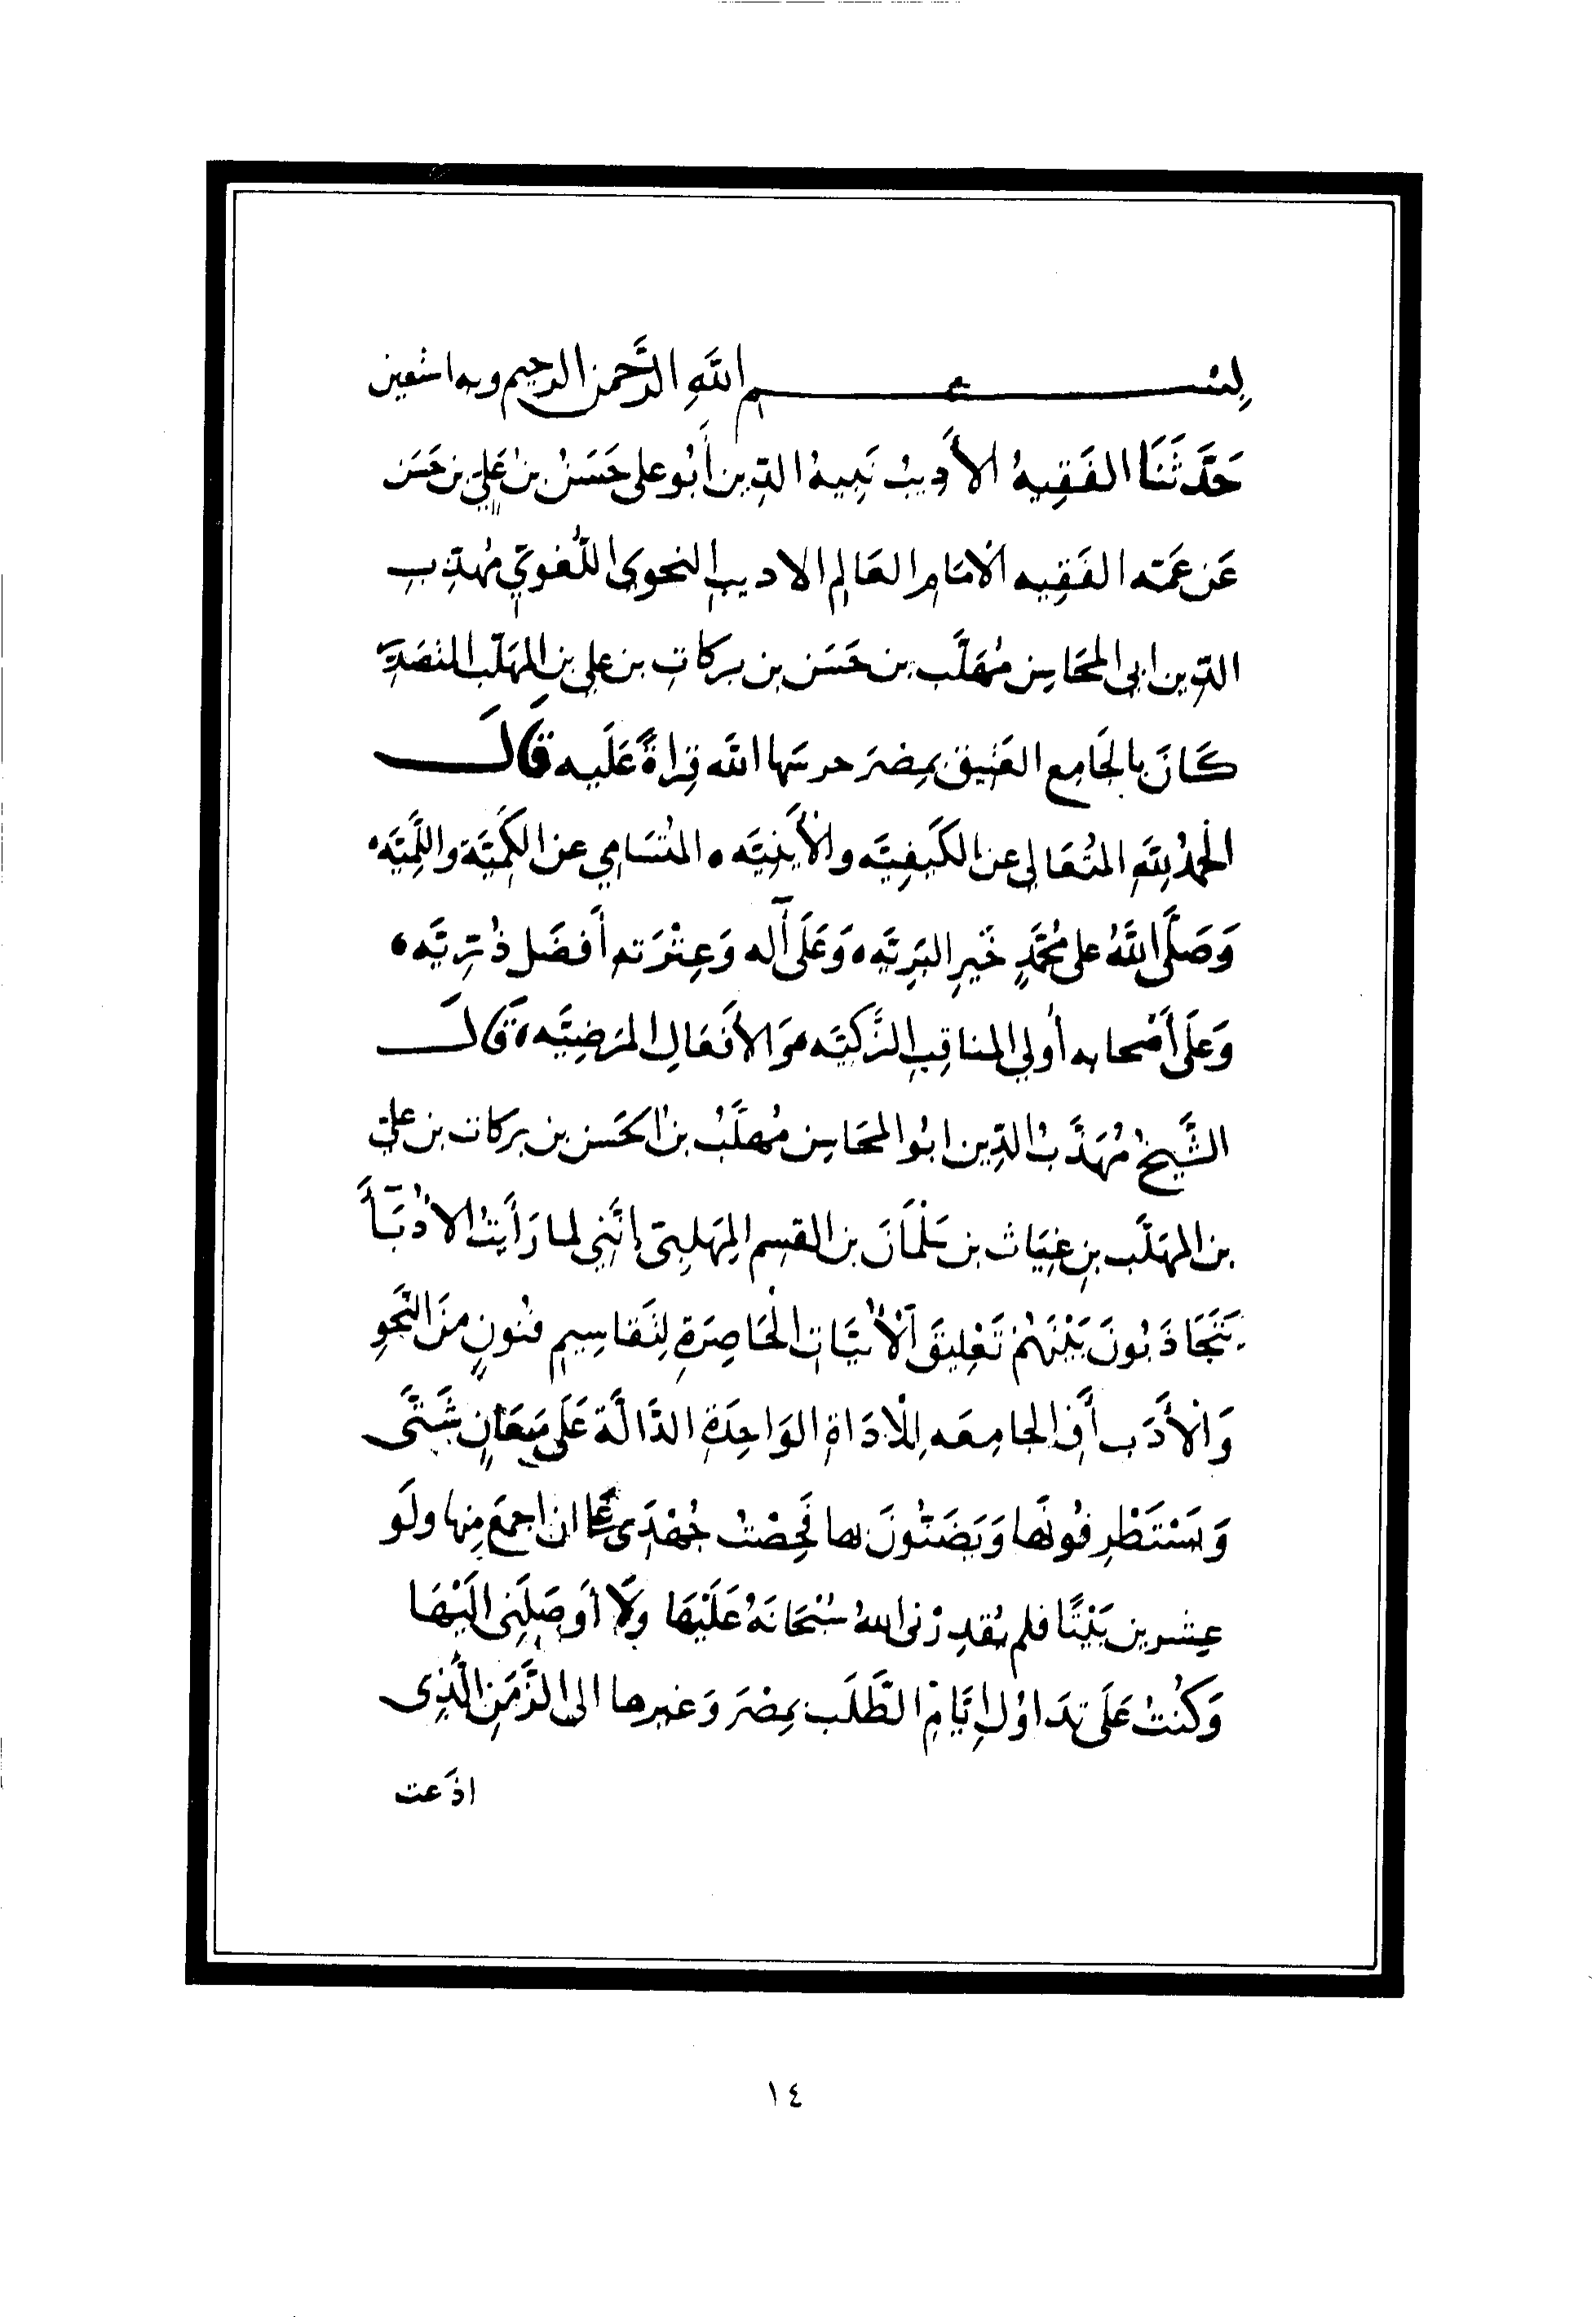 بِسْـــــــــمِ اللَّهِ الرَّحْمَنِ الرَّحِيمِ وبه استعين
حَدَّثَنَا الفَقِيهُ الأَدِيبُ نَبِيهُ الدِّين أَبُو على حَسَنُ بن عَلِيِّ بن حَسَن
عَن عَمِّه الفَقِيه الامَامِ العَالِمِ الاديبِ النحوىِ اللُّغَوِيِّ مُهذِّبِ
الدِّين ابى المحَاسِن مُهَلَّب بن حَسَن بن بركاتِ بن علي بن المهلّب
كَانَ بالجَامِع العَتِيق بمِصْرَ حرسَها الله قِراةً عَلَيه قَالَ
الحمدُ لِلَّهِ المتُعَالِى عن الكَيفِيَّه والأَيْنِيَّه ، المُتَسَامِي عن الكَمِيَّة واللَّمِيَّه ،
وَصَلَّى اللَّهُ على مُحَمَّدٍ خَيرِ البَرِيَّه ، وَعَلَى آله وَعِتْرَتهِ أَفضَلِ ذُرِّيَّه ،
وَعَلَى أَصْحابه أُولى المناقِبِ الزَّكِيَّه ، وَالأَفعَالِ المَرضِيَّه ، قَالَ
الشَّيخُ مُهَذَّبُ الدِّين ابُو المحَاسِن مُهلَّبُ بن الحَسَن بن بركات بن علىّ
بن المهلَّب بنِ غِيَاث بن سَلْمَانَ بن القسم المهَلبِىّ إنَّنِي لما رَأَيتُ الأُدَبَآءَ
يَتَجَاذَبُونَ بَيْنَهُمْ تَعْلِيقَ الأَبْيَاتِ الحَاصِرَةِ لِتَقَاسِيمِ فنُونٍ مِنَ النَّحْوِ
وَالأَدَب أَوِ الجامِعَه لِلْادَاةِ الوَاحِدَةِ الدَّالَّة عَلَى مَعَانٍ شَتَّى
وَيَسْتَطْرِفُونَها وَيَضَنُّونَ بها فَحِصْتُ جُهْدِى عَلَى ان اجمعَ مِنها ولَو
عِشرين بَيْتًا فلم يُقدِرْنى اللهُ سُبْحَانَهُ عَلَيْهَا وَلَا أَوصَلَنِى إلَيْهَا
وَكنُتُ عَلَى تدَاوُلِ ايَّامِ الطَّلَب بمِصْرَ وَغيرها الى الزَّمَنِ الَّذِى
اذعت
١٤